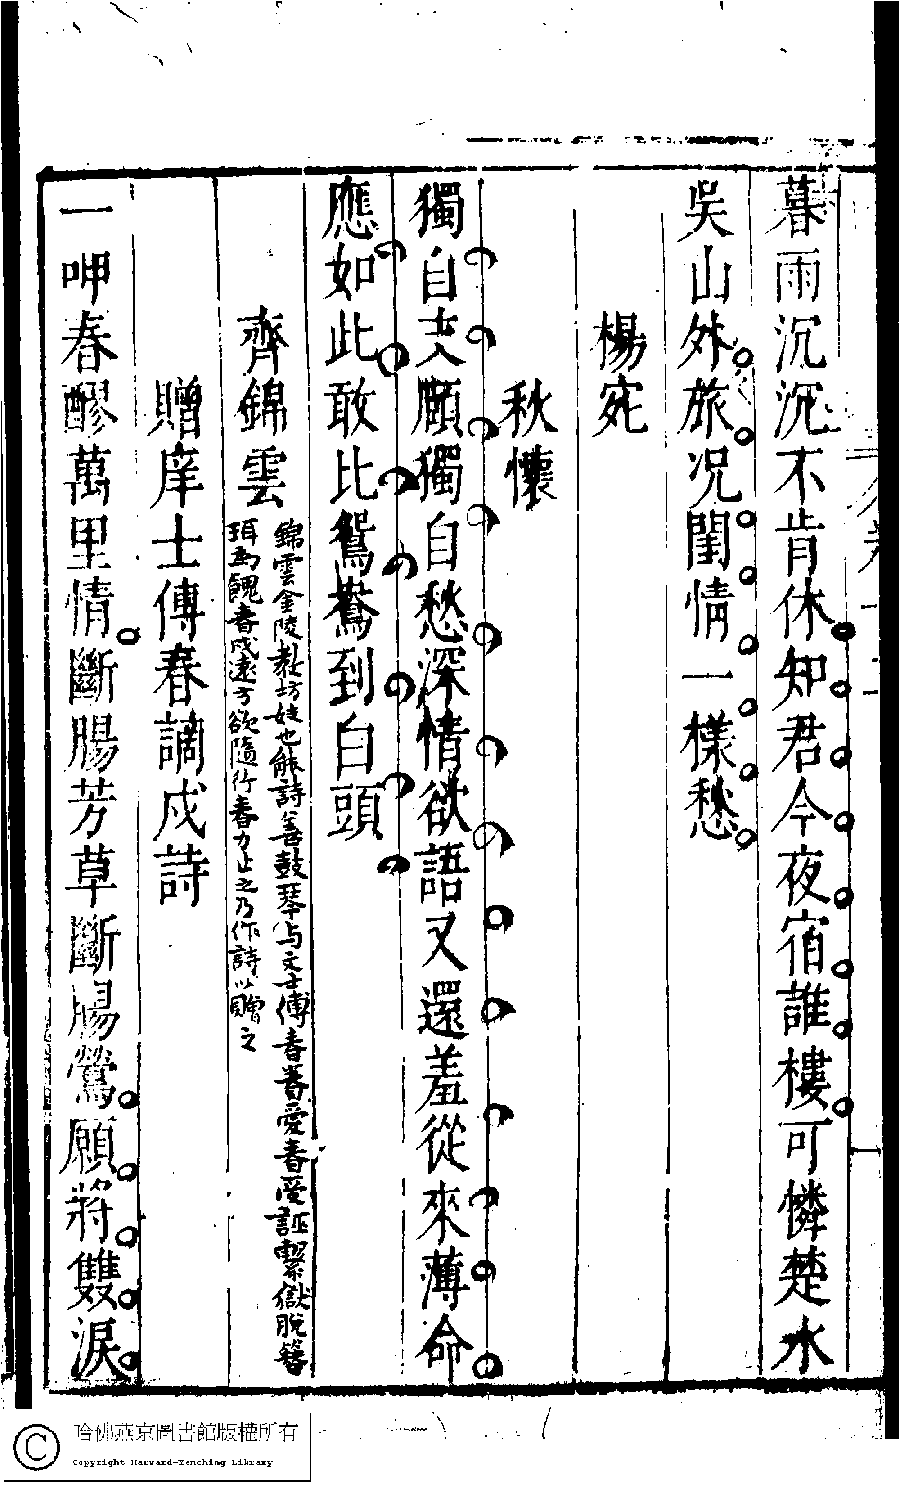 暮雨沉沉不肯休知君今夜宿誰樓可憐楚水
吳山外旅况閨情一樣愁
楊宛
秋懷
獨自支頤獨自愁深情欲語又還羞從來薄命
應如此敢比鴛鴦到白頭
齊錦雲
錦雲金陵教坊妓也能詩善鼓琴与文士傅春眷愛春受誣繫獄脫簪
珥為餽春戍遠方欲隨行春力止之乃作詩以贈之
贈庠士傅春謫戍詩
一呷春醪萬里情斷腸芳草斷腸鶯願將雙淚
哈佛燕京圖書館版權所有
Copyright Harvard-Yenching Library